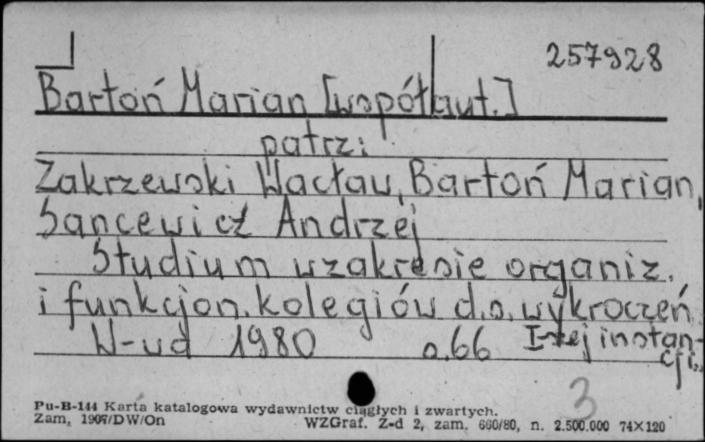 257928
Bartoń Marian [współaut.]
patrz:
Zakrzewski Wacław, Bartoń Marian,
Sancewicz Andrzej
Studium wzakresie organiz.
i funkcjon. kolegiów d.s. wykroczeń
W-wa 1980 s.66 I-szej instan-
cji.
3
Pu-B-144 Karta katalogowa wydawnictw ciągłych i zwartych.
Zam, 1907/DW/On WZGraf. Z-d 2, zam. 660/80, n. 2.500.000 74×120